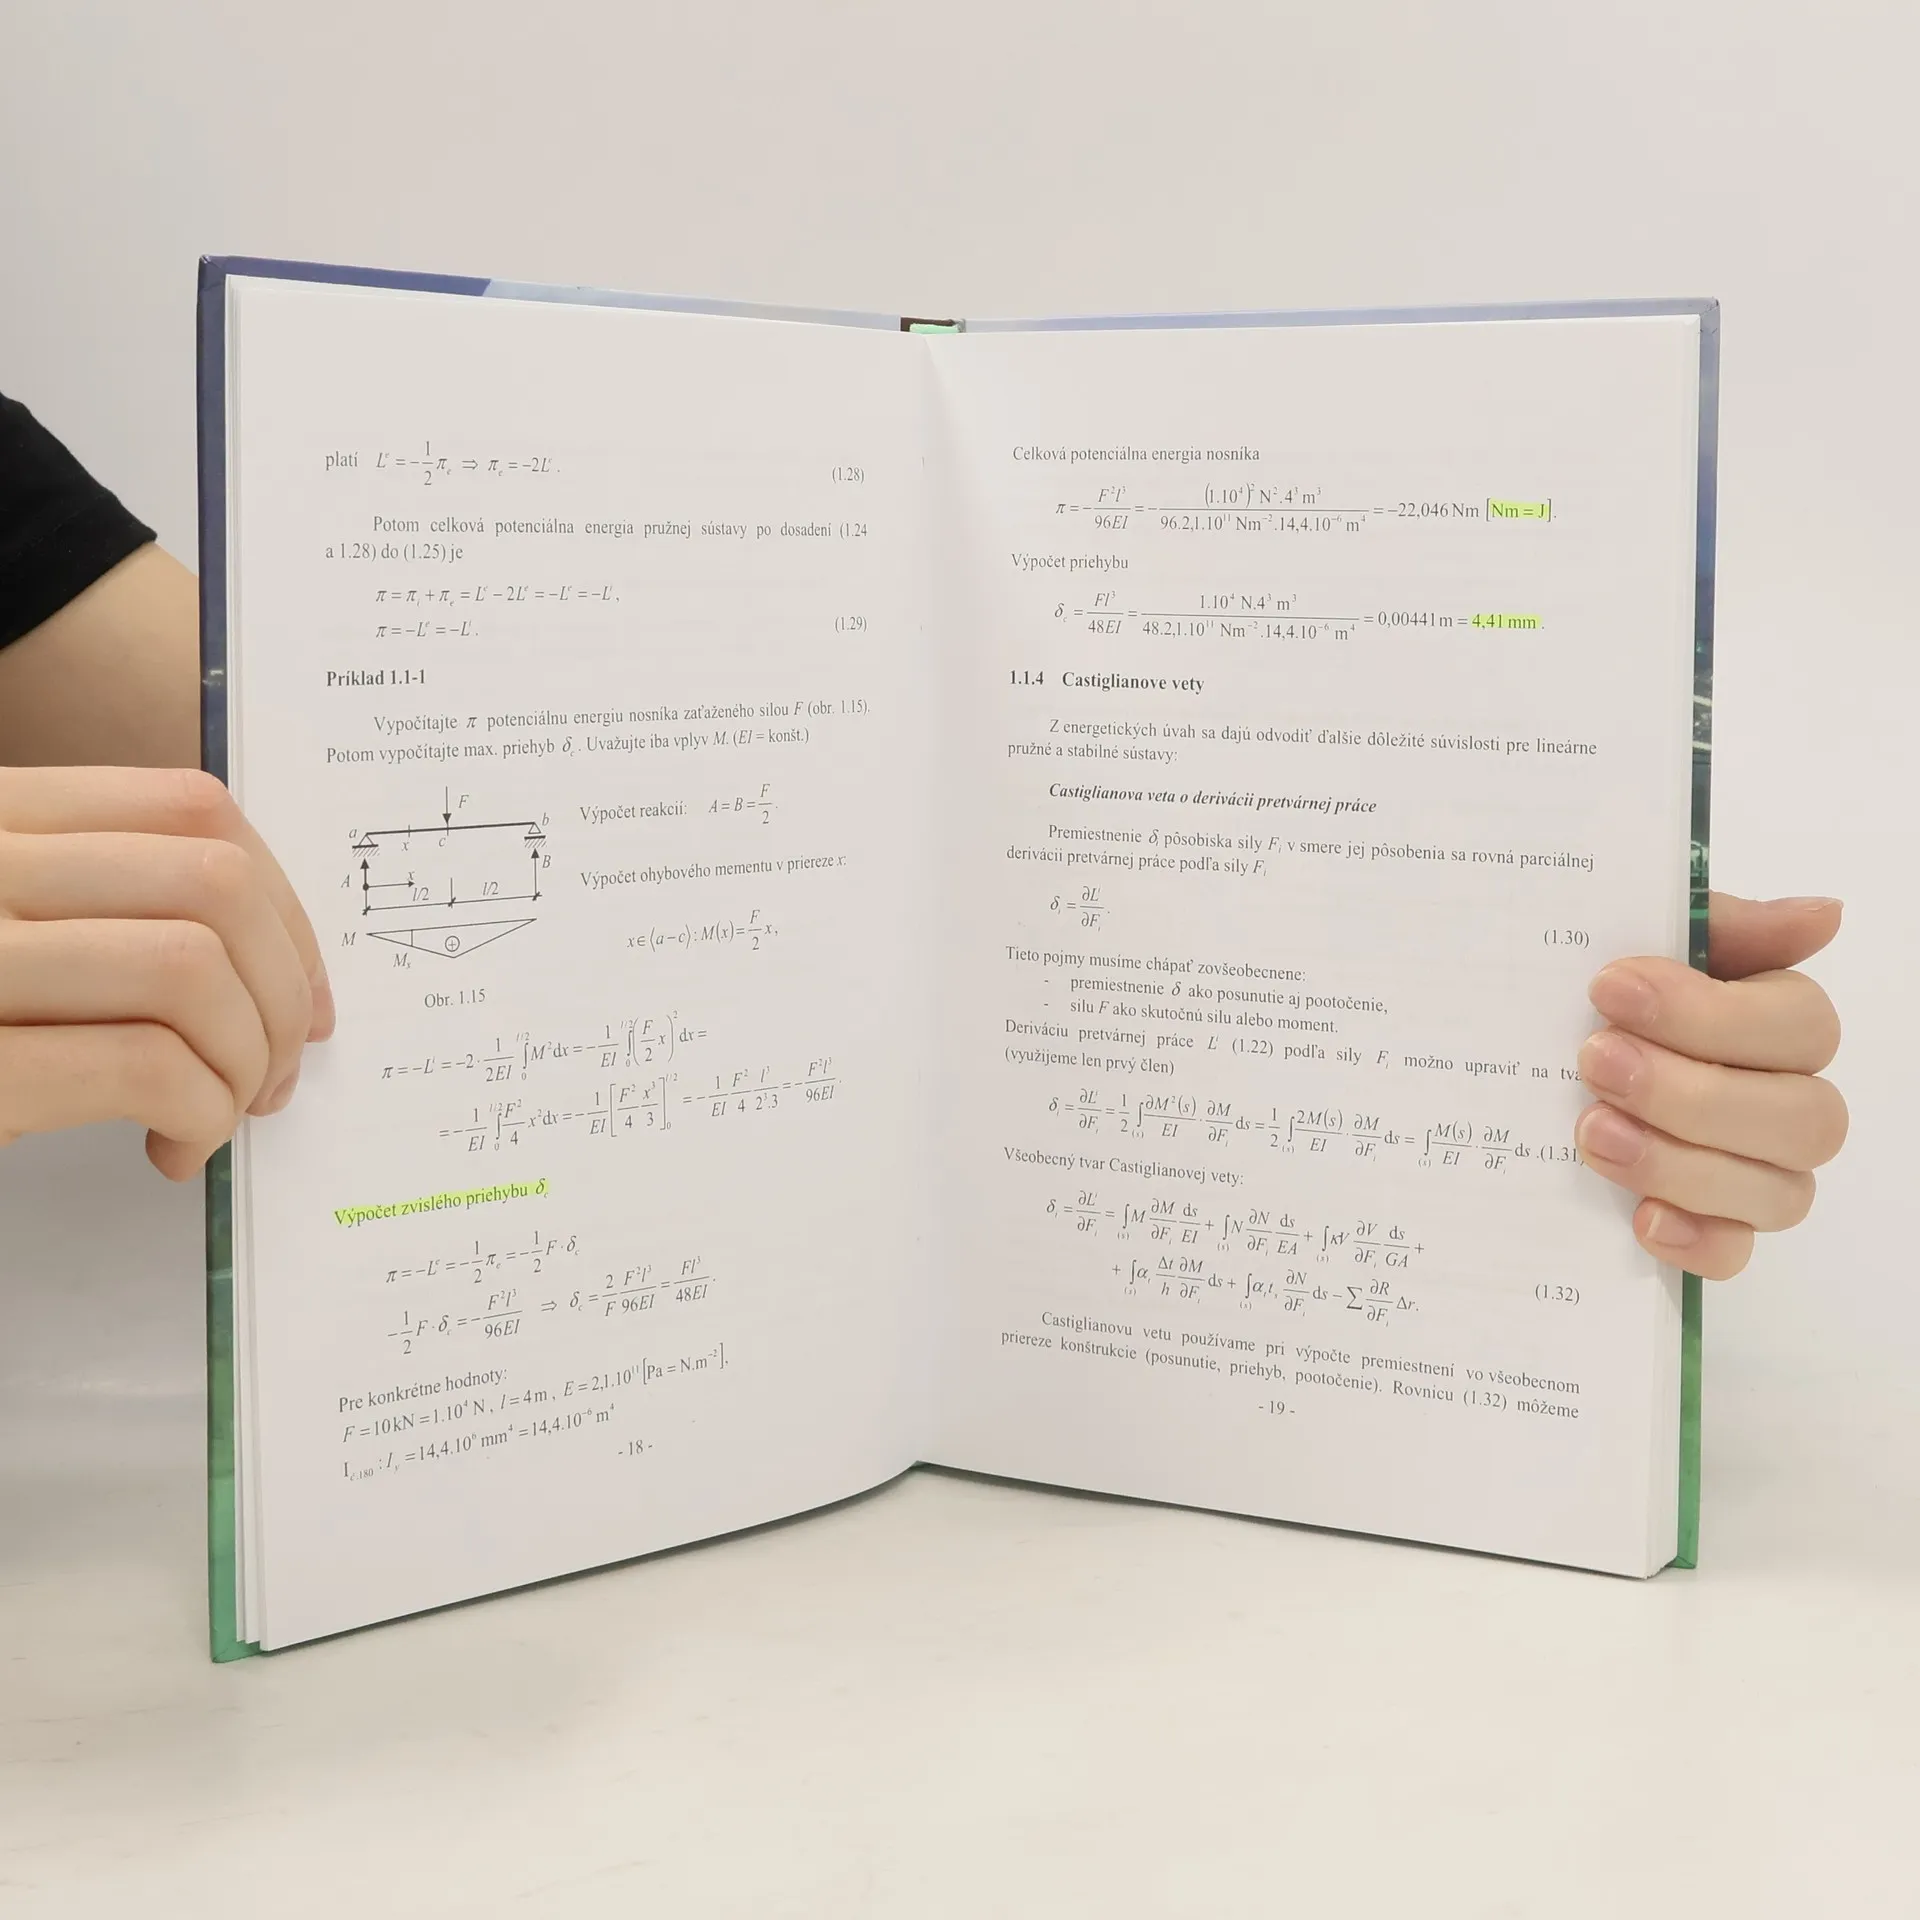 platí Lᵉ = -1/2 πₑ ⇒ πₑ = -2Lᵉ. (1.28)
Potom celková potenciálna energia pružnej sústavy po dosadení (1.24
a 1.28) do (1.25) je
π = πᵢ + πₑ = Lᵉ - 2Lᵉ = -Lᵉ = -Lⁱ,
π = -Lᵉ = -Lⁱ. (1.29)
Príklad 1.1-1
Vypočítajte π potenciálnu energiu nosníka zaťaženého silou F (obr. 1.15).
Potom vypočítajte max. priehyb δ_c. Uvažujte iba vplyv M. (EI = konšt.)
F
a x c b
A x l/2 l/2 B
M Mₓ ⊕
Obr. 1.15
Výpočet reakcií: A = B = F/2.
Výpočet ohybového mementu v priereze x:
x∈⟨a-c⟩: M(x) = F/2 x,
π = -Lⁱ = -2·1/2EI ∫₀^{l/2} M²dx = -1/EI ∫₀^{l/2} (F/2 x)² dx =
= -1/EI ∫₀^{l/2} F²/4 x²dx = -1/EI [F²/4 x³/3]₀^{l/2} = -1/EI F²/4 l³/2³.3 = -F²l³/96EI.
Výpočet zvislého priehybu δ_c
π = -Lᵉ = -1/2 πₑ = -1/2 F·δ_c
-1/2 F·δ_c = -F²l³/96EI ⇒ δ_c = 2/F F²l³/96EI = Fl³/48EI.
Pre konkrétne hodnoty:
F = 10kN = 1.10⁴ N, l = 4m, E = 2,1.10¹¹ [Pa = N.m⁻²],
I_{č.180} : I_y = 14,4.10⁶ mm⁴ = 14,4.10⁻⁶ m⁴
- 18 -
Celková potenciálna energia nosníka
π = -F²l³/96EI = -(1.10⁴)² N².4³ m³/96.2,1.10¹¹ Nm⁻².14,4.10⁻⁶ m⁴ = -22,046 Nm [Nm = J].
Výpočet priehybu
δ_c = Fl³/48EI = 1.10⁴ N.4³ m³/48.2,1.10¹¹ Nm⁻².14,4.10⁻⁶ m⁴ = 0,00441m = 4,41 mm.
1.1.4 Castiglianove vety
Z energetických úvah sa dajú odvodiť ďalšie dôležité súvislosti pre lineárne
pružné a stabilné sústavy:
Castiglianova veta o derivácii pretvárnej práce
Premiestnenie δᵢ pôsobiska sily Fᵢ v smere jej pôsobenia sa rovná parciálnej
derivácii pretvárnej práce podľa sily Fᵢ
δᵢ = ∂Lⁱ/∂Fᵢ. (1.30)
Tieto pojmy musíme chápať zovšeobecnene:
- premiestnenie δ ako posunutie aj pootočenie,
- silu F ako skutočnú silu alebo moment.
Deriváciu pretvárnej práce Lⁱ (1.22) podľa sily Fᵢ možno upraviť na tva
(využijeme len prvý člen)
δᵢ = ∂Lⁱ/∂Fᵢ = 1/2 ∫₍ₛ₎ ∂M²(s)/EI · ∂M/∂Fᵢ ds = 1/2 ∫₍ₛ₎ 2M(s)/EI · ∂M/∂Fᵢ ds = ∫₍ₛ₎ M(s)/EI · ∂M/∂Fᵢ ds .(1.31
Všeobecný tvar Castiglianovej vety:
δᵢ = ∂Lⁱ/∂Fᵢ = ∫₍ₛ₎ M ∂M/∂Fᵢ ds/EI + ∫₍ₛ₎ N ∂N/∂Fᵢ ds/EA + ∫₍ₛ₎ κV ∂V/∂Fᵢ ds/GA +
+ ∫₍ₛ₎ αₜ Δt/h ∂M/∂Fᵢ ds + ∫₍ₛ₎ αₜtₛ ∂N/∂Fᵢ ds - ∑ ∂R/∂Fᵢ Δr. (1.32)
Castiglianovu vetu používame pri výpočte premiestnení vo všeobecnom
priereze konštrukcie (posunutie, priehyb, pootočenie). Rovnicu (1.32) môžeme
- 19 -